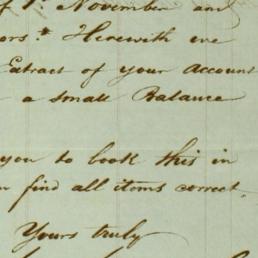 of 1st November and
ors. Herewith we
Extract of your account
a small Balance
you to look this in
find all items correct.
Yours truly